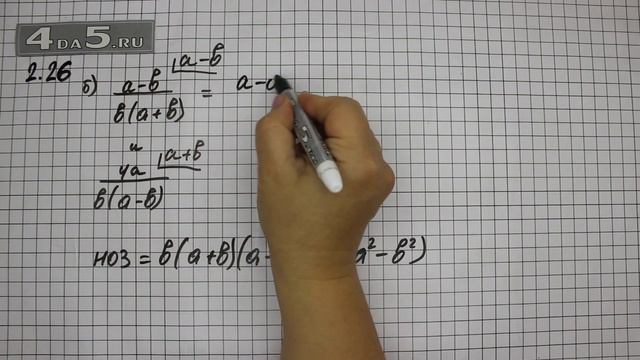 4DA5.RU
2.26 б) (a-b)/(b(a+b)) ⌊a-b = a-
и
4a/(b(a-b)) ⌊a+b
НОЗ = b(a+b)(a- a²-b²)